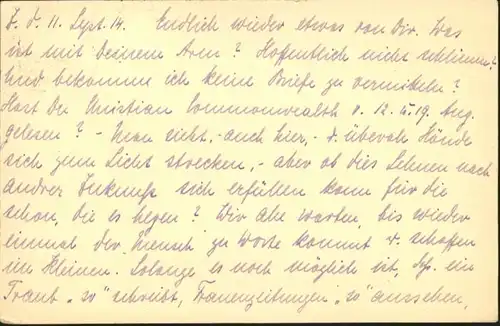 Z. d. 11. Sept. 14. Endlich wieder etwas von Dir. Was
ist mit Deinem Arm? Hoffentlich nicht schlimm?
Und bekomme ich keine Briefe zu vermitteln?
Hast Du Christian Commonwealth v. 12. u. 19. Aug.
gelesen? - Man sieht, - auch hier, - d. überall Hände
sich zum Licht strecken, - aber ob dies Sehnen nach
andrer Zukunft sich erfüllen kann für die
schon, die es hegen? Wir alle warten, bis wieder
einmal der Mensch zu Worte kommt u. schaffen
im Kleinen. Solange es noch möglich ist, daß ein
Traub „so" schreibt, Frauenzeitungen „so" aussehen,